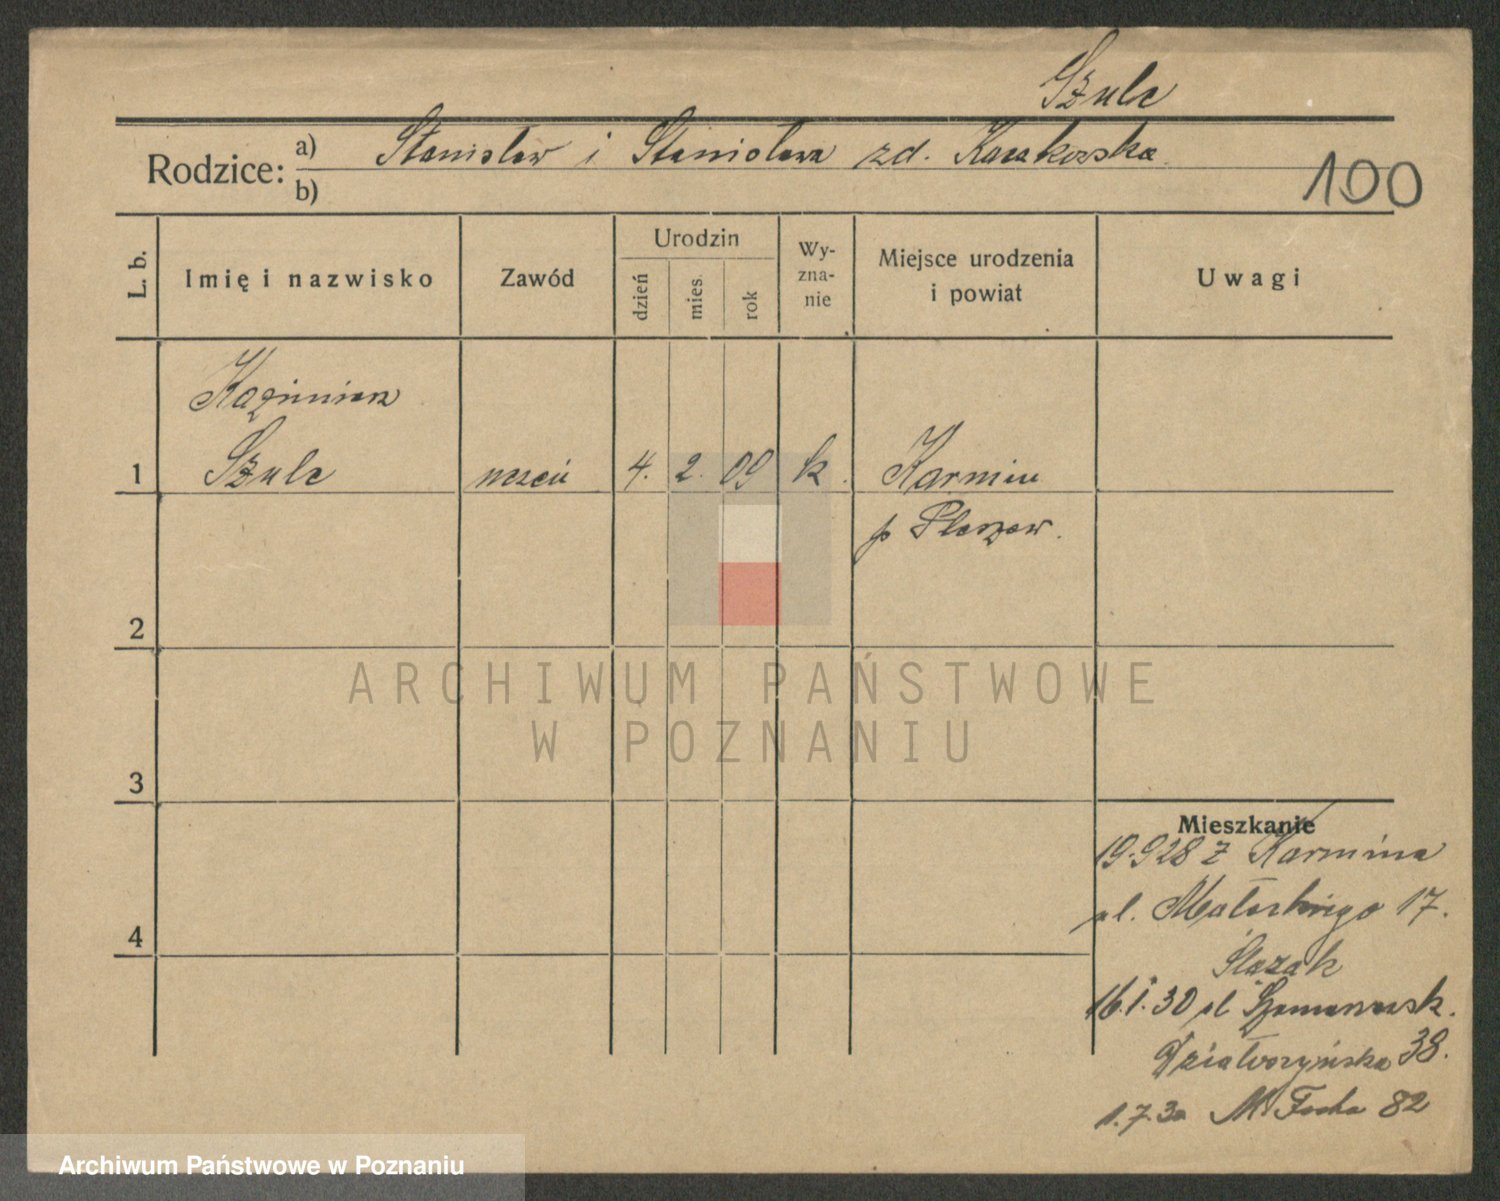 Szulc
Rodzice: a) Stanisław i Stanisława zd. Kaczkowska
b)
100
L. b. Imię i nazwisko Zawód Urodzin dzień mies. rok Wy-zna-nie Miejsce urodzenia i powiat Uwagi
Kazimierz
1 Szulc uczeń 4. 2. 09 k. Karmin
p Pleszew.
2
3
4
Mieszkanie
19.928 z Karmina
ul. Małeckiego 17.
Ślązak
16.1.30 ul
38.
1.7.30 M Focha 82
ARCHIWUM PAŃSTWOWE
W POZNANIU
Archiwum Państwowe w Poznaniu